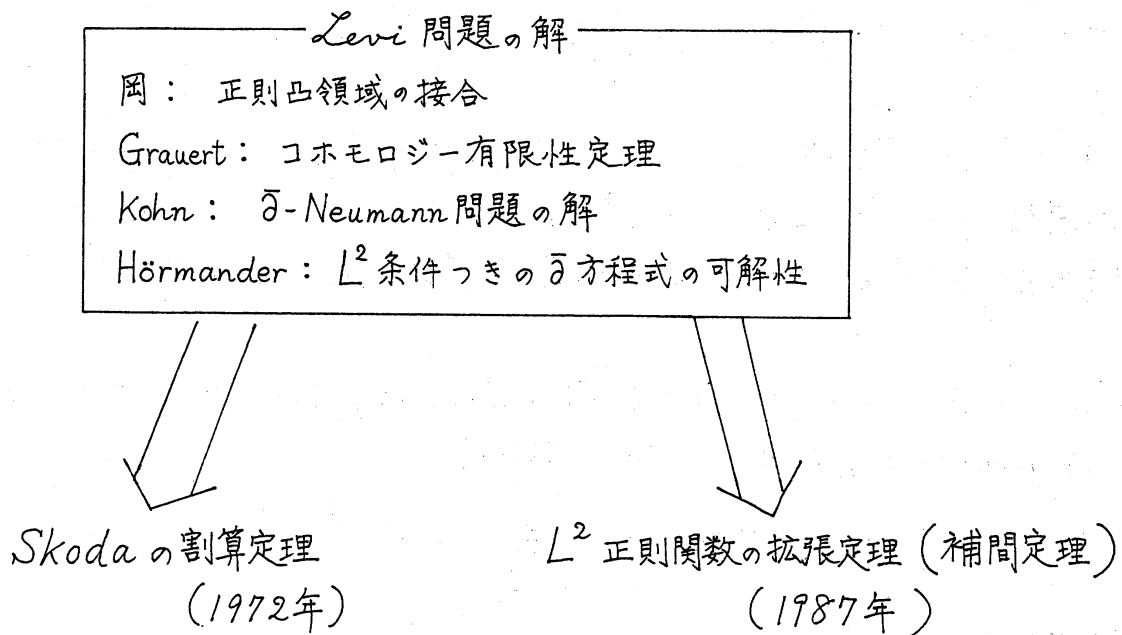 Levi 問題の解
岡： 正則凸領域の接合
Grauert： コホモロジー有限性定理
Kohn： ∂̄-Neumann問題の解
Hörmander： L²条件つきの∂̄方程式の可解性
Skodaの割算定理
(1972年)
L² 正則関数の拡張定理 (補間定理)
(1987年)